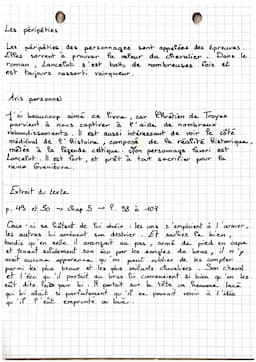 Les péripéties
Les péripéties des personnages sont appelées des épreuves.
Elles servent à prouver la valeur du chevalier. Dans le
roman, Lancelot s'est battu de nombreuses fois et
est toujours ressorti vainqueur.
Avis personnel
J'ai beaucoup aimé ce livre, car Chrétien de Troyes
parvient à nous captiver à l'aide de nombreux
rebondissements. Il est aussi intéressant de voir le côté
médiéval de l'Histoire, composé de la réalité historique,
mêlés à la légende celtique. Mon personnage favori est
Lancelot. Il est fort, et prêt à tout sacrifier pour la
reine Guenièvre.
Extrait du texte
p. 49 et 50 → Chap 5 → P. 98 à 107
Ceux-ci se hâtent de lui obéir : les uns s'emploient à l'armer,
les autres lui amènent son destrier. Et sachez le bien,
tandis qu'en selle il avançait au pas, armé de pied en cape
et tenant solidement son écu par les sangles de bras, il n'y
avait aucune apparence qu'on peut oublier de les compter
parmi les plus beaux et les plus vaillants chevaliers. Son cheval
et l'écu qu'il portait au bras lui convenaient si bien qu'on les
eût dits faits pour lui. Il portait sur la tête un heaume lacé
qui lui allait si parfaitement qu'il ne pouvait venir à l'idée
qu'il l'eût emprunté ou loué.